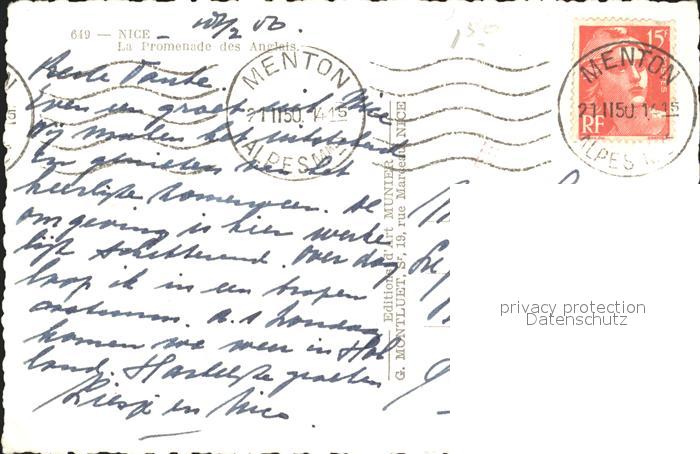 649 — NICE
La Promenade des Anglais.
Beste Tante.
Even een groet uit Nice
Wij maken het uitstekend
En genieten van het
heerlijke zomerweer. De
omgeving is hier werke
lijk schitterend. Over dag
loop ik in een tropen
costuum. a.s. Zondag
komen we weer in Hol
land. Hartelijke groeten
en Nico
Editions d'Art MUNIER
G. MONTLUET, Sr, 19, rue Mardeau, NICE
MENTON
21 II 50. 14 15
ALPES Mmes
15F
RF
MENTON
21 II 50. 14 15
ALPES
privacy protection
Datenschutz